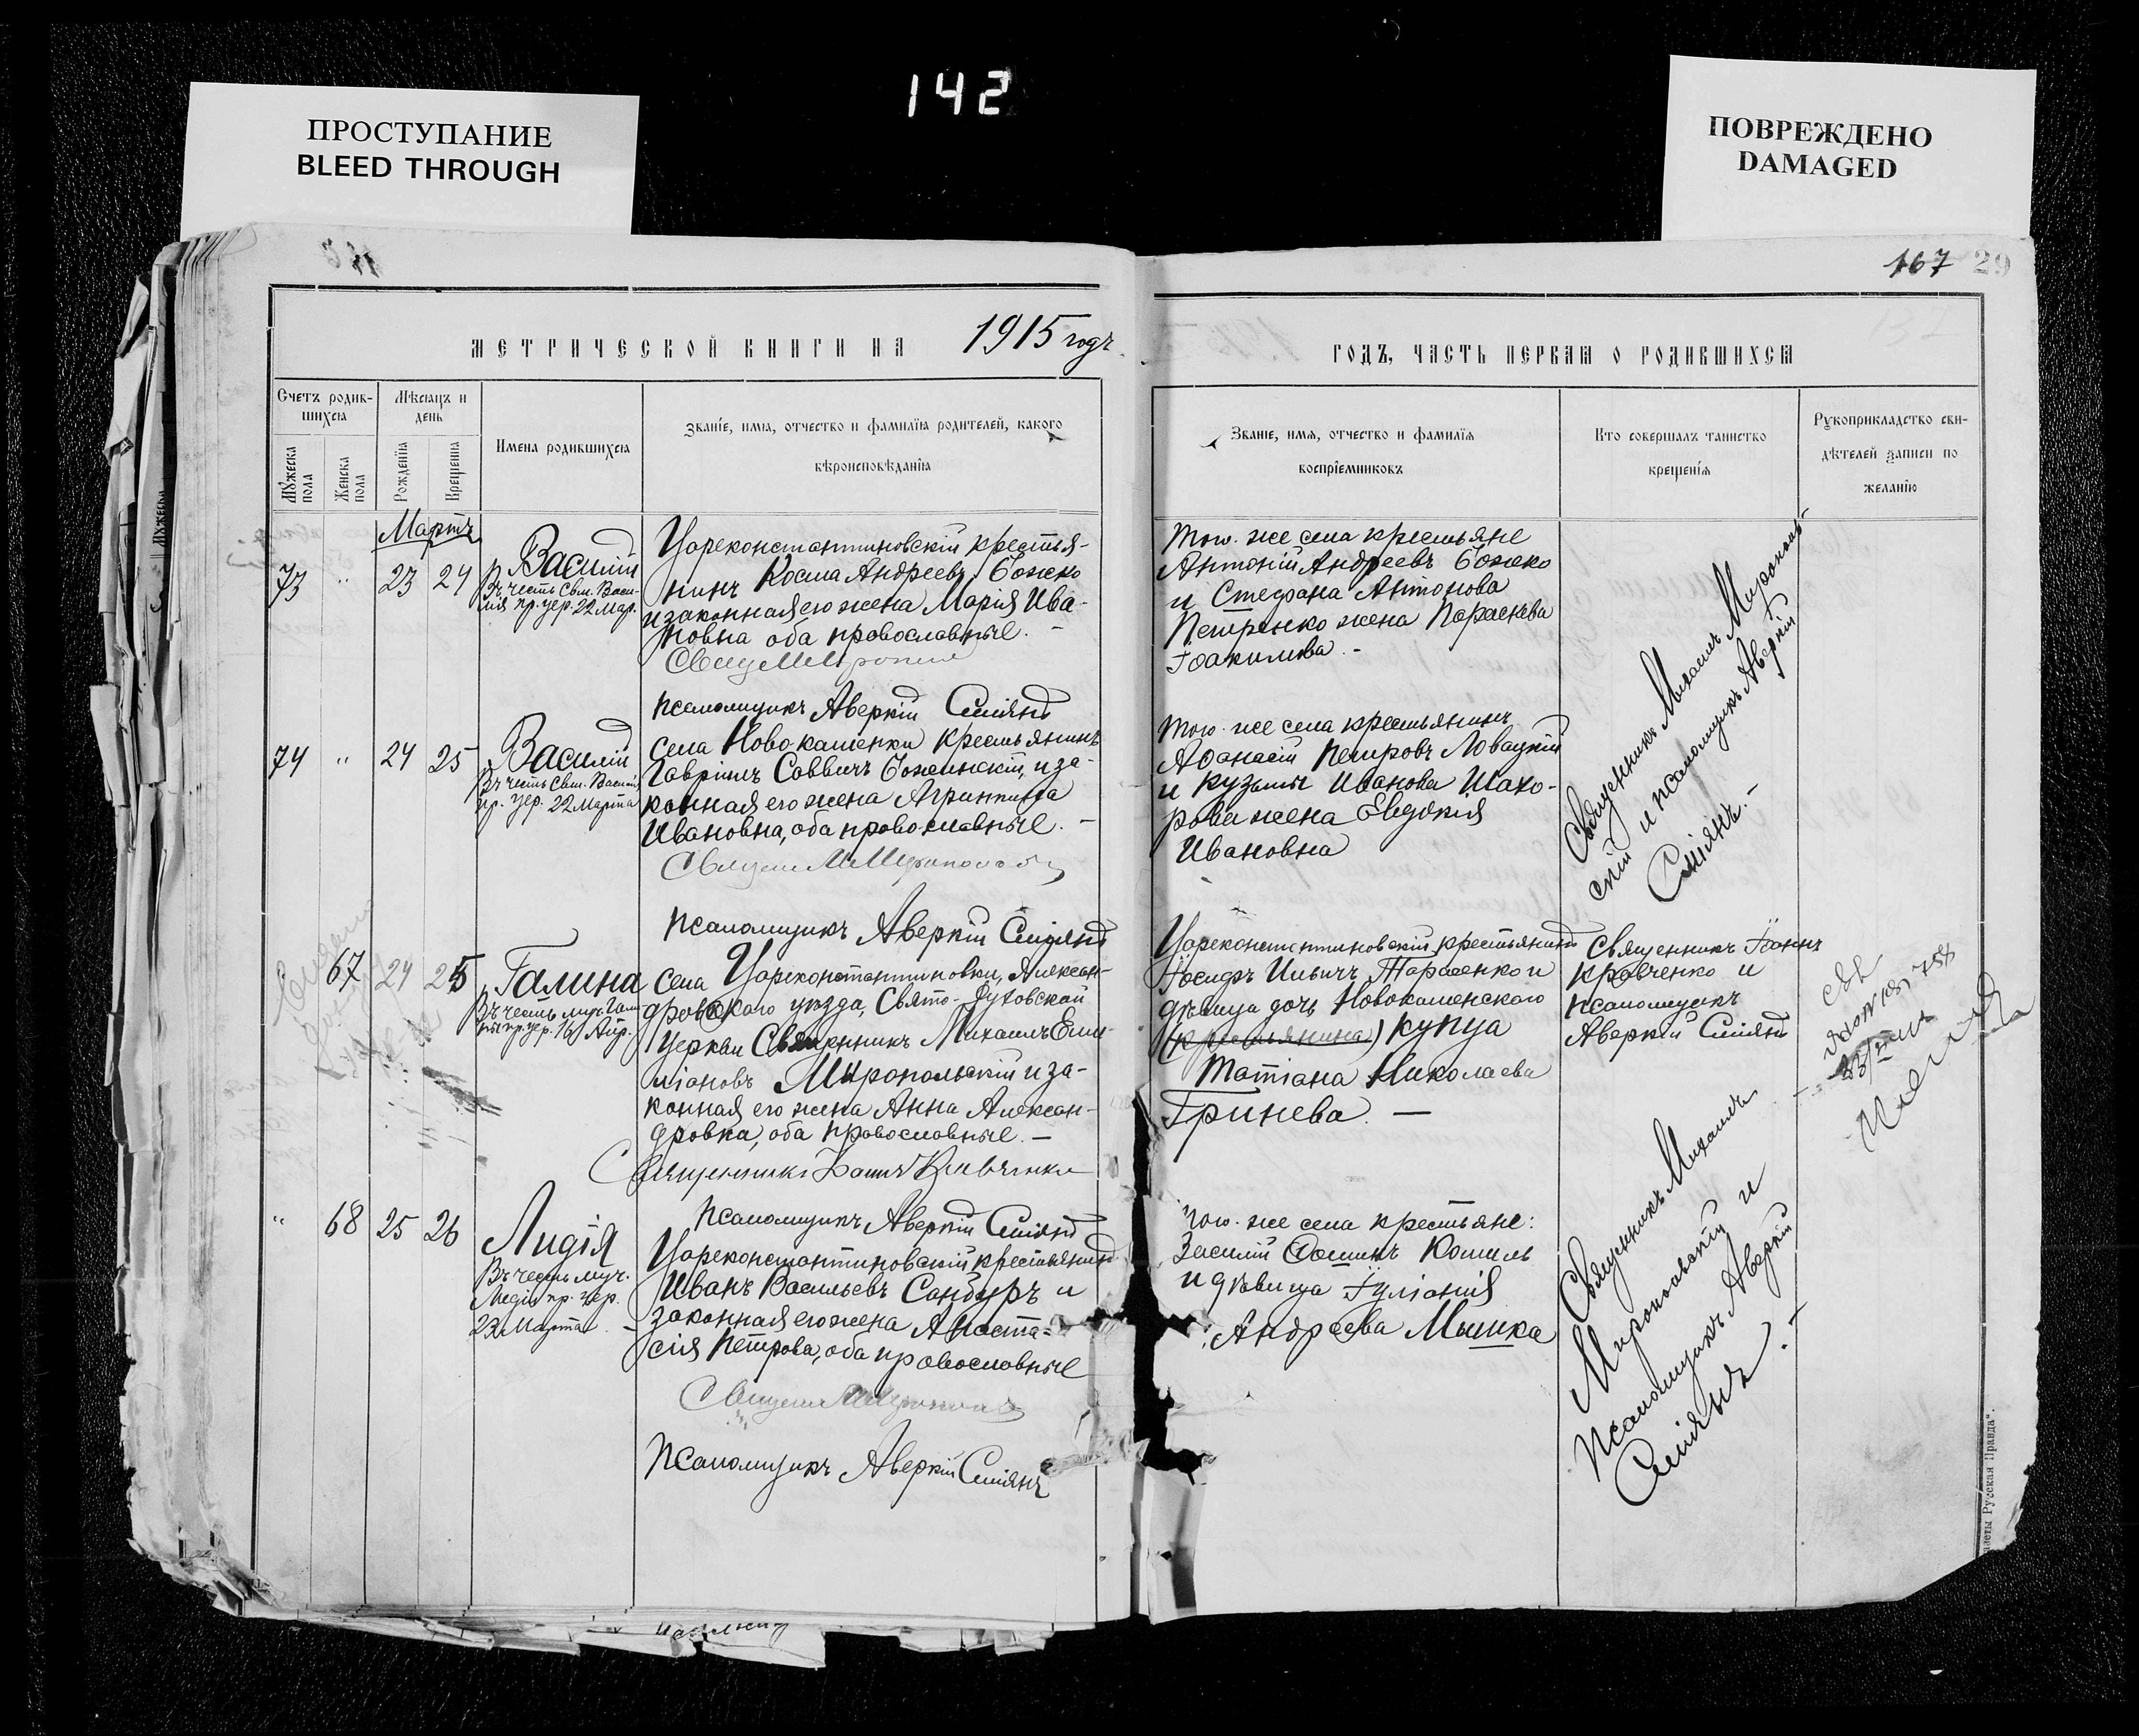 142
ПРОСТУПАНИЕ
BLEED THROUGH
ПОВРЕЖДЕНО
DAMAGED
167 29
МЕТРИЧЕСКОЙ КНИГИ НА 1915 годъ
ГОДЪ, ЧАСТЬ ПЕРВАЯ О РОДИВШИХСЯ
Счетъ родив-
шихся
Мѣсяцъ и
день
Мужеска
пола
Женска
пола
Рожденія
Крещенія
Имена родившихся
Званіе, имя, отчество и фамилія родителей, какого
вѣроисповѣданія
Званіе, имя, отчество и фамилія
воспріемниковъ
Кто совершалъ таинство
крещенія
Рукоприкладство сви-
дѣтелей записи по
желанію
Мартъ
73 " 23 24
Василій
Въ честь Свм. Васи-
лія пр. цер. 22 Мар.
Цареконстантиновскій крестья-
нинъ Косма Андреевъ Божко
и законная его жена Марія Ива-
новна оба православные. -
Псаломщикъ Аверкій Сміянъ
Того-же села крестьяне
Антоній Андреевъ Божко
и Стефана Антонова
Петренко жена Параскева
Іоакимова. -
Священникъ Михаилъ Мирополь-
скій и псаломщикъ Аверкій
Сміянъ. -
74 " 24 25
Василій
Въ честь Свм. Василія
пр. цер. 22 Марта
Села Ново-каменки крестьянинъ
Гавріилъ Саввичъ Божинскій, и за-
конная его жена Агриппина
Ивановна, оба православные. -
Псаломщикъ Аверкій Сміянъ
Того-же села крестьянинъ
Афанасій Петровъ Ловацкій
и Кузьмы Иванова Шахо-
рова жена Евдокія
Ивановна
67 24 25
Галина
Въ честь муч. Гали-
ны пр. цер. 16 Апр.
Села Цареконстантиновки, Алексан-
дровскаго уѣзда, Свято-Духовской
церкви Священникъ Михаилъ Еми-
ліановъ Миропольскій и за-
конная его жена Анна Алексан-
дровна, оба православные. -
Священникъ Іоаннъ Кравченко
Псаломщикъ Аверкій Сміянъ
Цареконстантиновскій крестьянинъ
Іосифъ Ильичъ Тарасенко и
дѣвица дочь Новокаменскаго
(крестьянина) купца
Татіана Николаева
Гринева. -
Священникъ Іоаннъ
Кравченко и
псаломщикъ
Аверкій Сміянъ
" 68 25 26
Лидія
Въ честь муч.
Лидіи пр. цер.
23 Марта. -
Цареконстантиновскій крестьянинъ
Иванъ Васильевъ Сандуръ и
законная его жена Анаста-
сія Петрова, оба православные
Псаломщикъ Аверкій Сміянъ
Того-же села крестьяне:
Василій Коваль
и дѣвица Іуліанія
Андреева Мышка
Священникъ Михаилъ
Миропольскій и
Псаломщикъ Аверкій
Сміянъ. -
газеты Русская Правда".